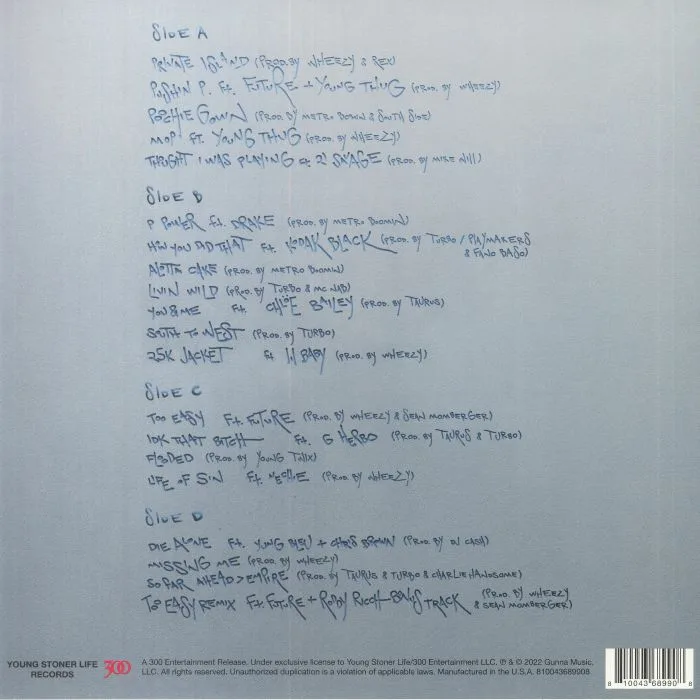 SIDE A
PRIVATE ISLAND (PROD. BY WHEEZY & REX)
PUSHIN P. ft. FUTURE + YOUNG THUG (PROD. BY WHEEZY)
POOCHIE GOWN (PROD. BY METRO BOOMIN & SOUTH SIDE)
MOP ft. YOUNG THUG (PROD. BY WHEEZY)
THOUGHT I WAS PLAYING ft. 21 SAVAGE (PROD. BY MIKE WILL)
SIDE B
P POWER ft. DRAKE (PROD. BY METRO BOOMIN)
HOW YOU DID THAT ft. KODAK BLACK (PROD. BY TURBO / PLAYMAKERS
& FANO BASO)
ALOTTA CAKE (PROD. BY METRO BOOMIN)
LIVIN WILD (PROD. BY TURBO & MC NAB)
YOU & ME ft. CHLÖE BAILEY (PROD. BY TAURUS)
SOUTH TO WEST (PROD. BY TURBO)
25K JACKET ft LIL BABY (PROD. BY WHEEZY)
SIDE C
TOO EASY Ft. FUTURE (PROD. BY WHEEZY & SEAN MOMBERGER)
IDK THAT BITCH Ft. G HERBO (PROD. BY TAURUS & TURBO)
FLOODED (PROD. BY YOUNG TWIX)
LIFE OF SIN Ft. NECHIE (PROD. BY WHEEZY)
SIDE D
DIE ALONE Ft. YUNG BLEU + CHRIS BROWN (PROD. BY DJ CASH)
MISSING ME (PROD. BY WHEEZY)
SO FAR AHEAD > EMPIRE (PROD. BY TAURUS & TURBO & CHARLIE HANDSOME)
TOO EASY REMIX Ft. FUTURE + RODDY RICCH - BONUS TRACK (PROD. BY WHEEZY
& SEAN MOMBERGER)
YOUNG STONER LIFE
RECORDS
300
A 300 Entertainment Release. Under exclusive license to Young Stoner Life/300 Entertainment LLC. ℗ & © 2022 Gunna Music,
LLC. All rights reserved. Unauthorized duplication is a violation of applicable laws. Manufactured in the U.S.A. 810043689908
8 10043 68990 8